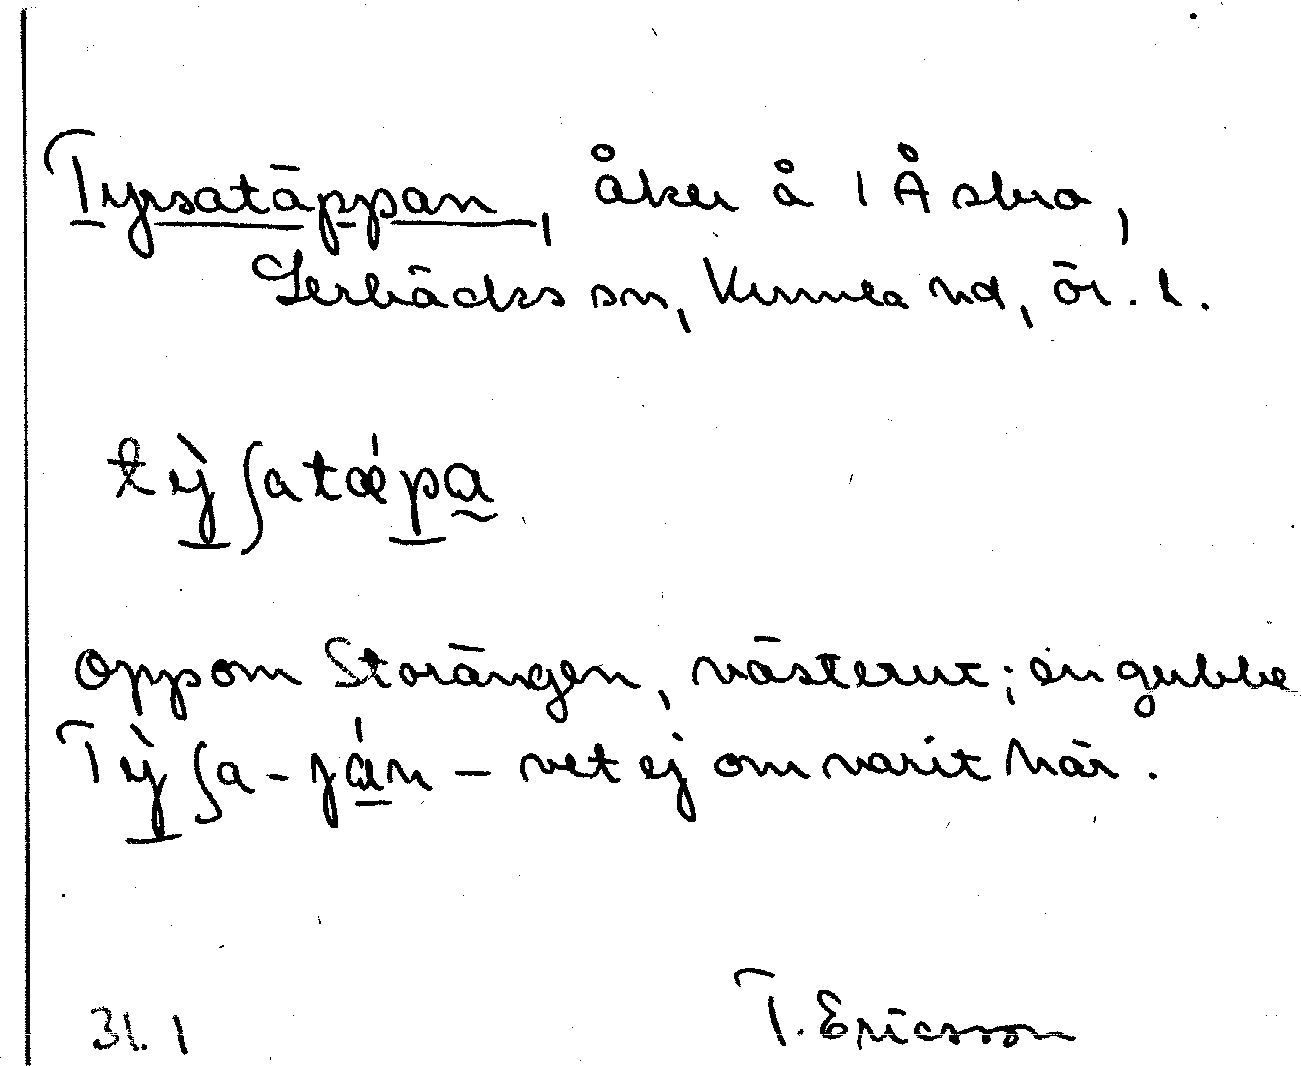 Tyrsatäppan, åker å 1 Åsbro,
Lerbäcks sn, Kumla hd, ör. l.
tỳʃatǽpa
Oppom Storängen, västerut; en gubbe
Tỳʃa-ján – vet ej om varit här.
31. 1
T. Ericsson